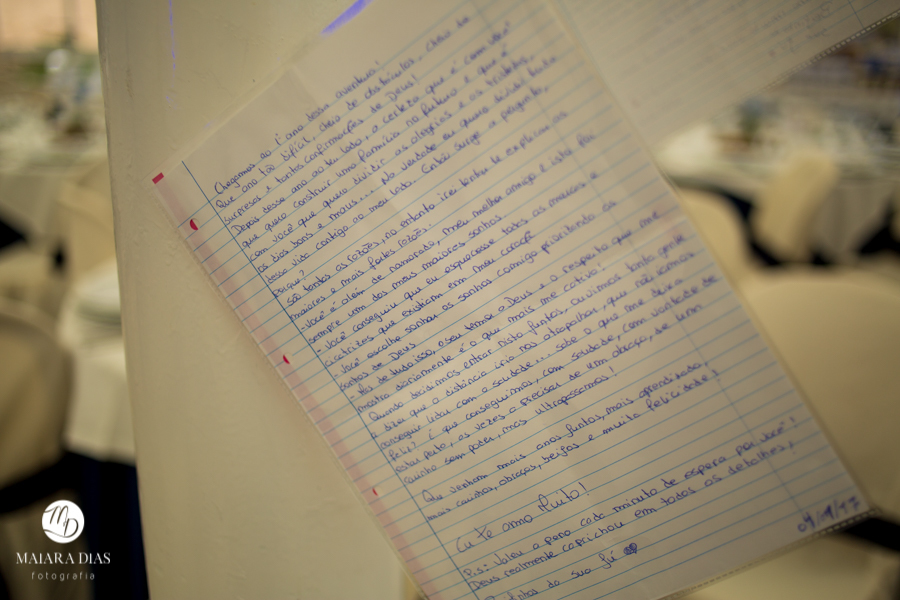 Chegamos ao 1º ano dessa aventura!
Que ano tão difícil, cheio de obstáculos, cheio de
surpresas e tantas confirmações de Deus!
Depois desse ano ao teu lado, a certeza que é com você
que quero construir uma família no futuro e que é
com você que quero dividir as alegrias e as tristezas,
os dias bons e maus... Na verdade eu quero dividir toda
essa vida contigo ao meu lado. Então surge a pergunta,
porque?
São tantas as razões, no entanto irei tentar te explicar as
maiores e mais fortes razões.
- Você é além de namorado, meu melhor amigo e isto foi
sempre um dos meus maiores sonhos.
- Você conseguiu que eu esquecesse todas as mágoas e
cicatrizes que existiam em meu coração
- Você escolhe sonhar os sonhos comigo priorizando os
sonhos de Deus
- Mas de tudo isso, o seu temor a Deus e o respeito que me
mostra diariamente é o que mais me cativa!
Quando decidimos entrar nisto juntos, ouvimos tanta gente
a dizer que a distância iria nos atrapalhar, que não íamos
conseguir lidar com a saudade... sabe o que me deixa
feliz? É que conseguimos, com saudade, com vontade de
estar perto, as vezes a precisar de um abraço, de um
carinho sem poder, mas ultrapassamos!
Que venham mais anos juntos, mais aprendizados,
mais carinhos, abraços, beijos e muita felicidades
Eu te amo Muito!
P.s: Valeu a pena cada minuto de espera por você!
Deus realmente caprichou em todos os detalhes,
da sua Jú
09/09/17
MD
MAIARA DIAS
fotografia